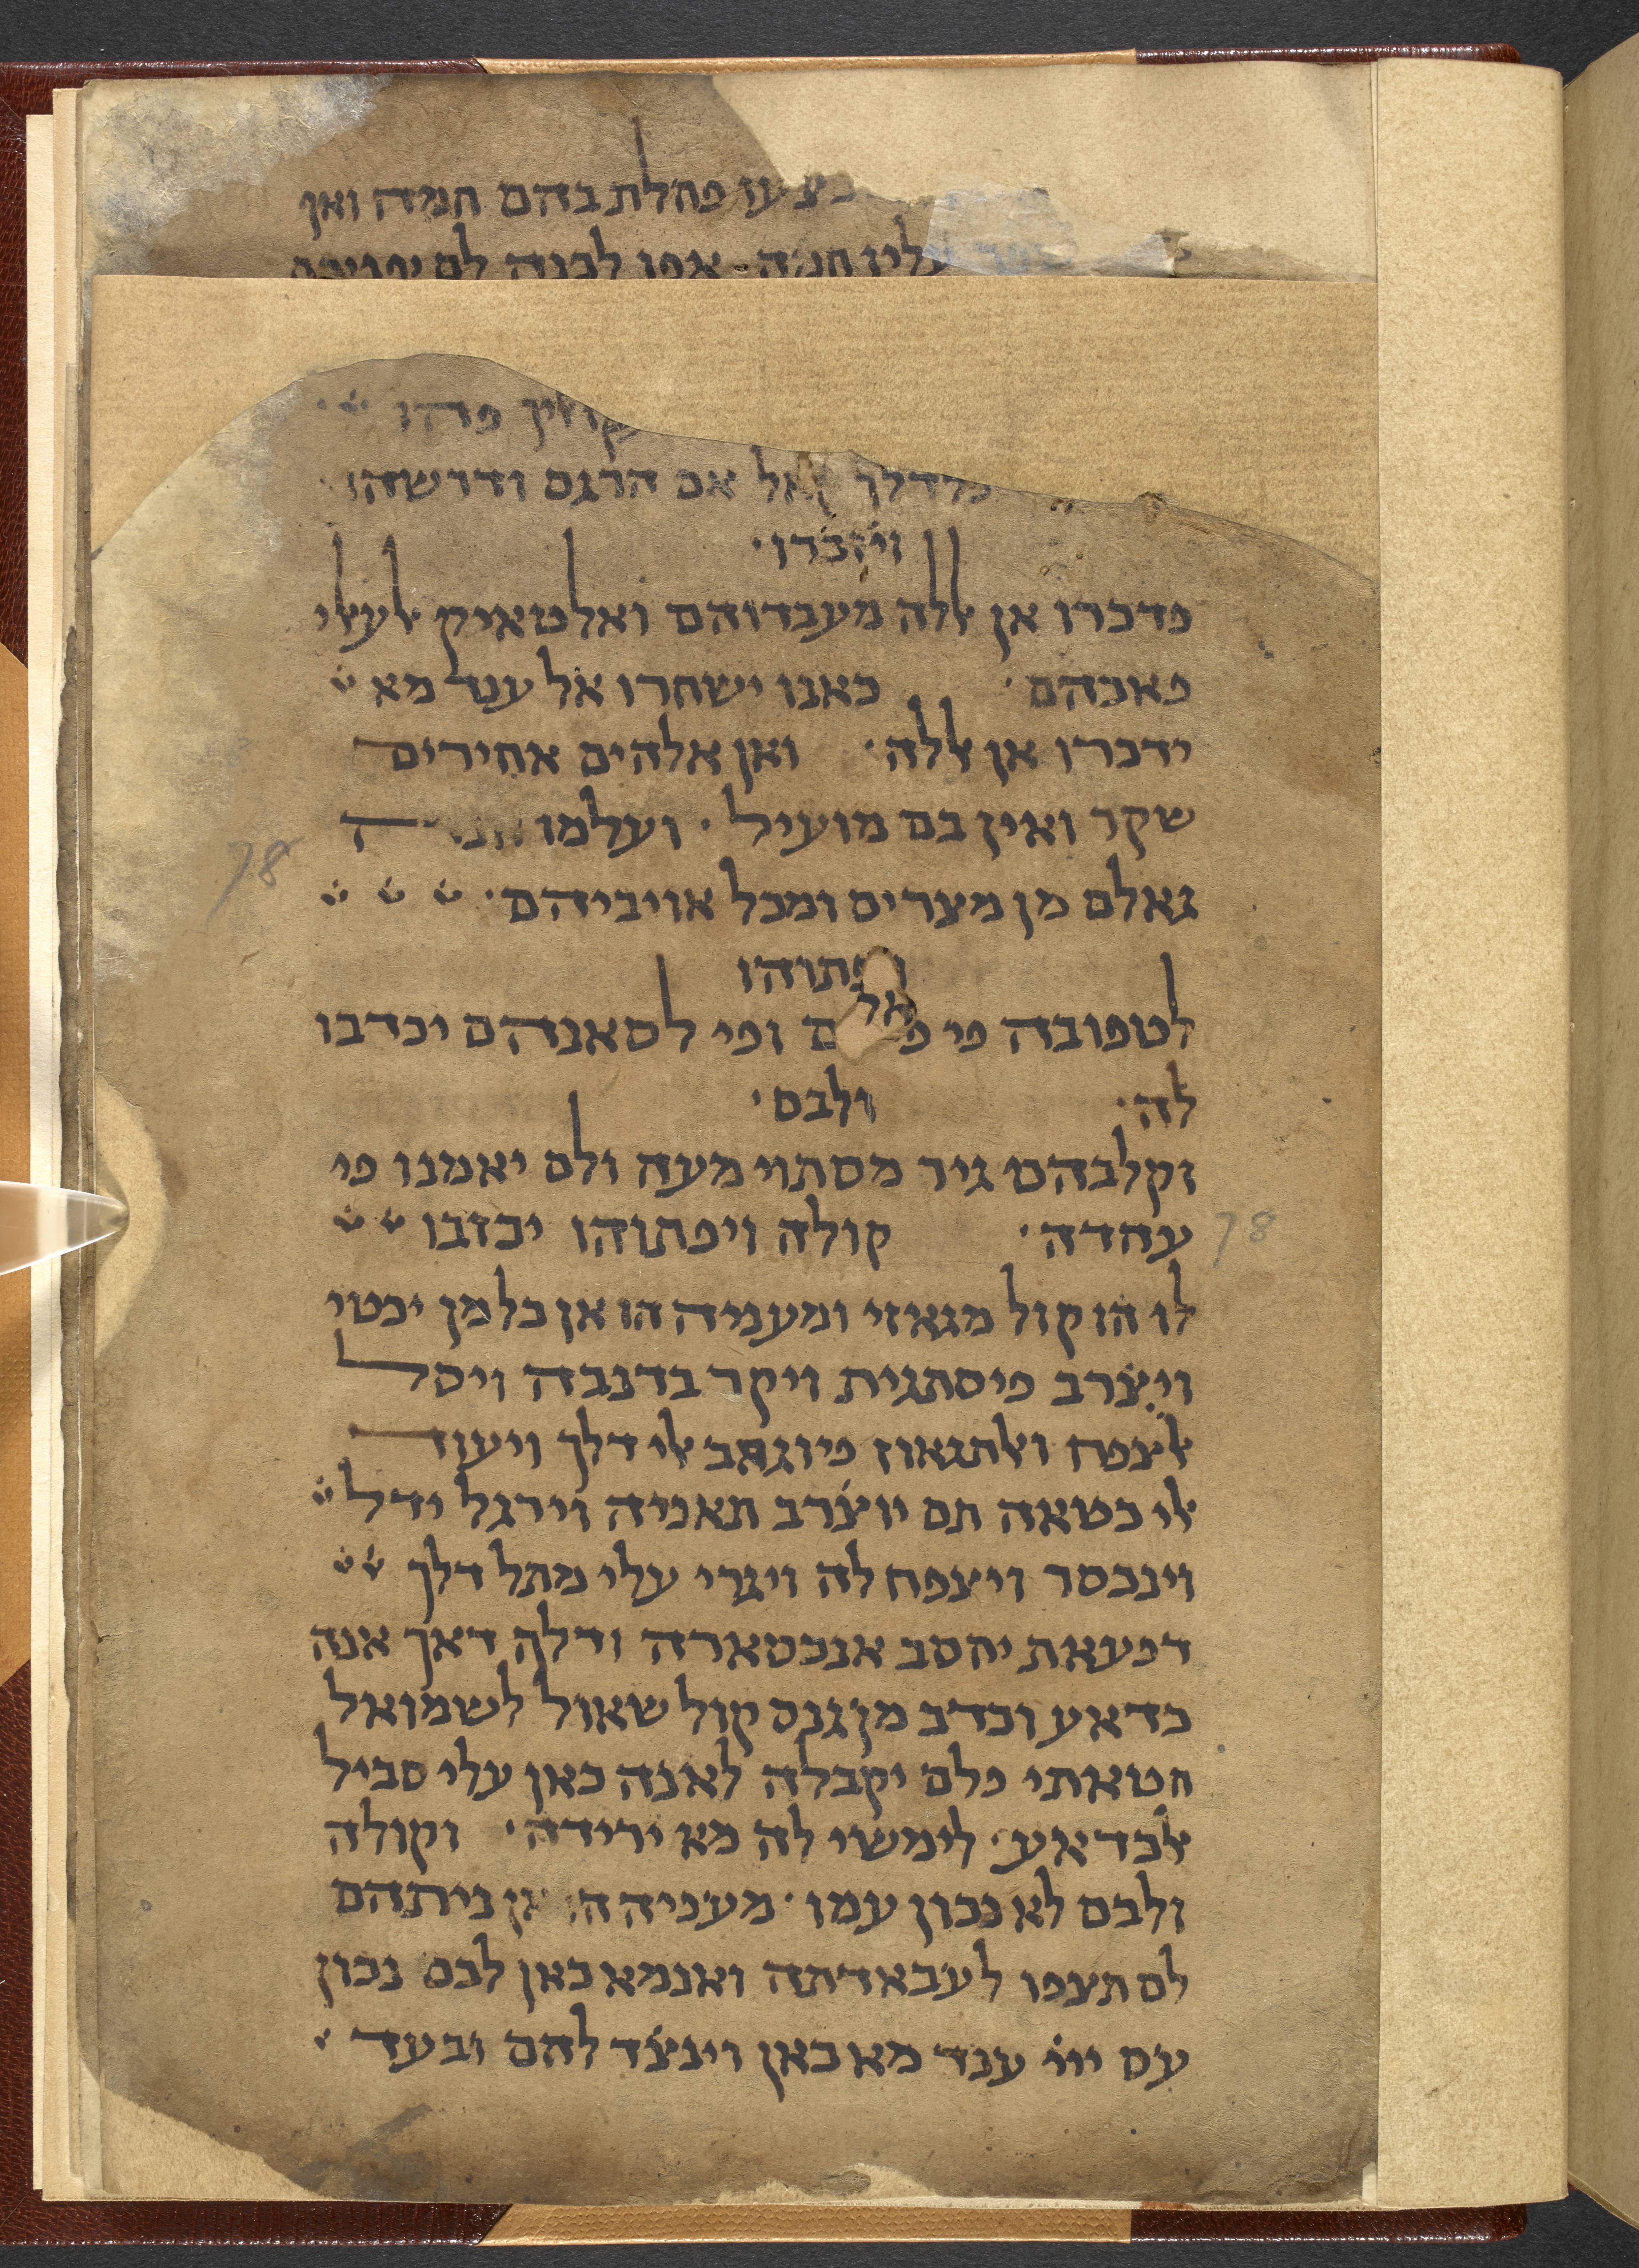 פחלת בהם חמה ואן
חמה
פהו
קאל אם הרגם ודרשהו
ויזכרו
פדכרו אן אללה מעבדוהם ואלטאיק אלעאלי
פאכהם כאנו ישחרו אל ענד מא
ידכרו אן אללה ואן אלהים אחירים
שקר ואין בם מועיל ועלמו
גאלם מן מצרים ומכל אויביהם
לטפובה פי ם ופי לסאנהם יכדבו
לה ולבם
וקלבהם גיר מסתוי מעה ולם יאמנו פי
עהדה קולה ויפתוהו יכזבו
לו הו קול מגאזי ומעניה הו אן כל מן יכטי
ויצרב פיסתגית ויקר בדנבה ויסל
אלצפח ואלתגאוז פיוגהב אלי דלך ויעוד
אלי כטאה תם יוצרב תאניה וירגל ידל
וינכסר ויצפח לה ויגרי עלי מתל דלך
דפעאת יחסב אנכסארה ודלך דאך אנה
כדאע וכדב מן גנס קול שאול לשמואל
חטאתי פלם יקבלה לאנה כאן עלי סביל
אלכדאע לימשי לה מא ירידה וקולה
ולבם לא נכון עמו מעניה ניתהם
לם תצפו לעבאדתה ואנמא כאן לבם נכון
עם ייי ענד מא כאן וינצד להם ובעד
78
78